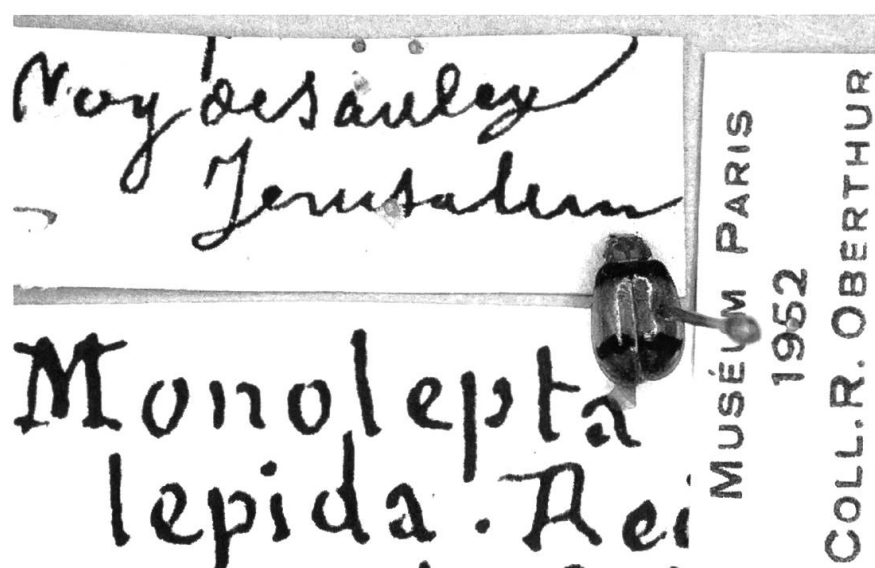 Voy desauley
Jerusalem
Monolepta
lepida. Rei
MUSÉUM PARIS
1952
COLL. R. OBERTHUR